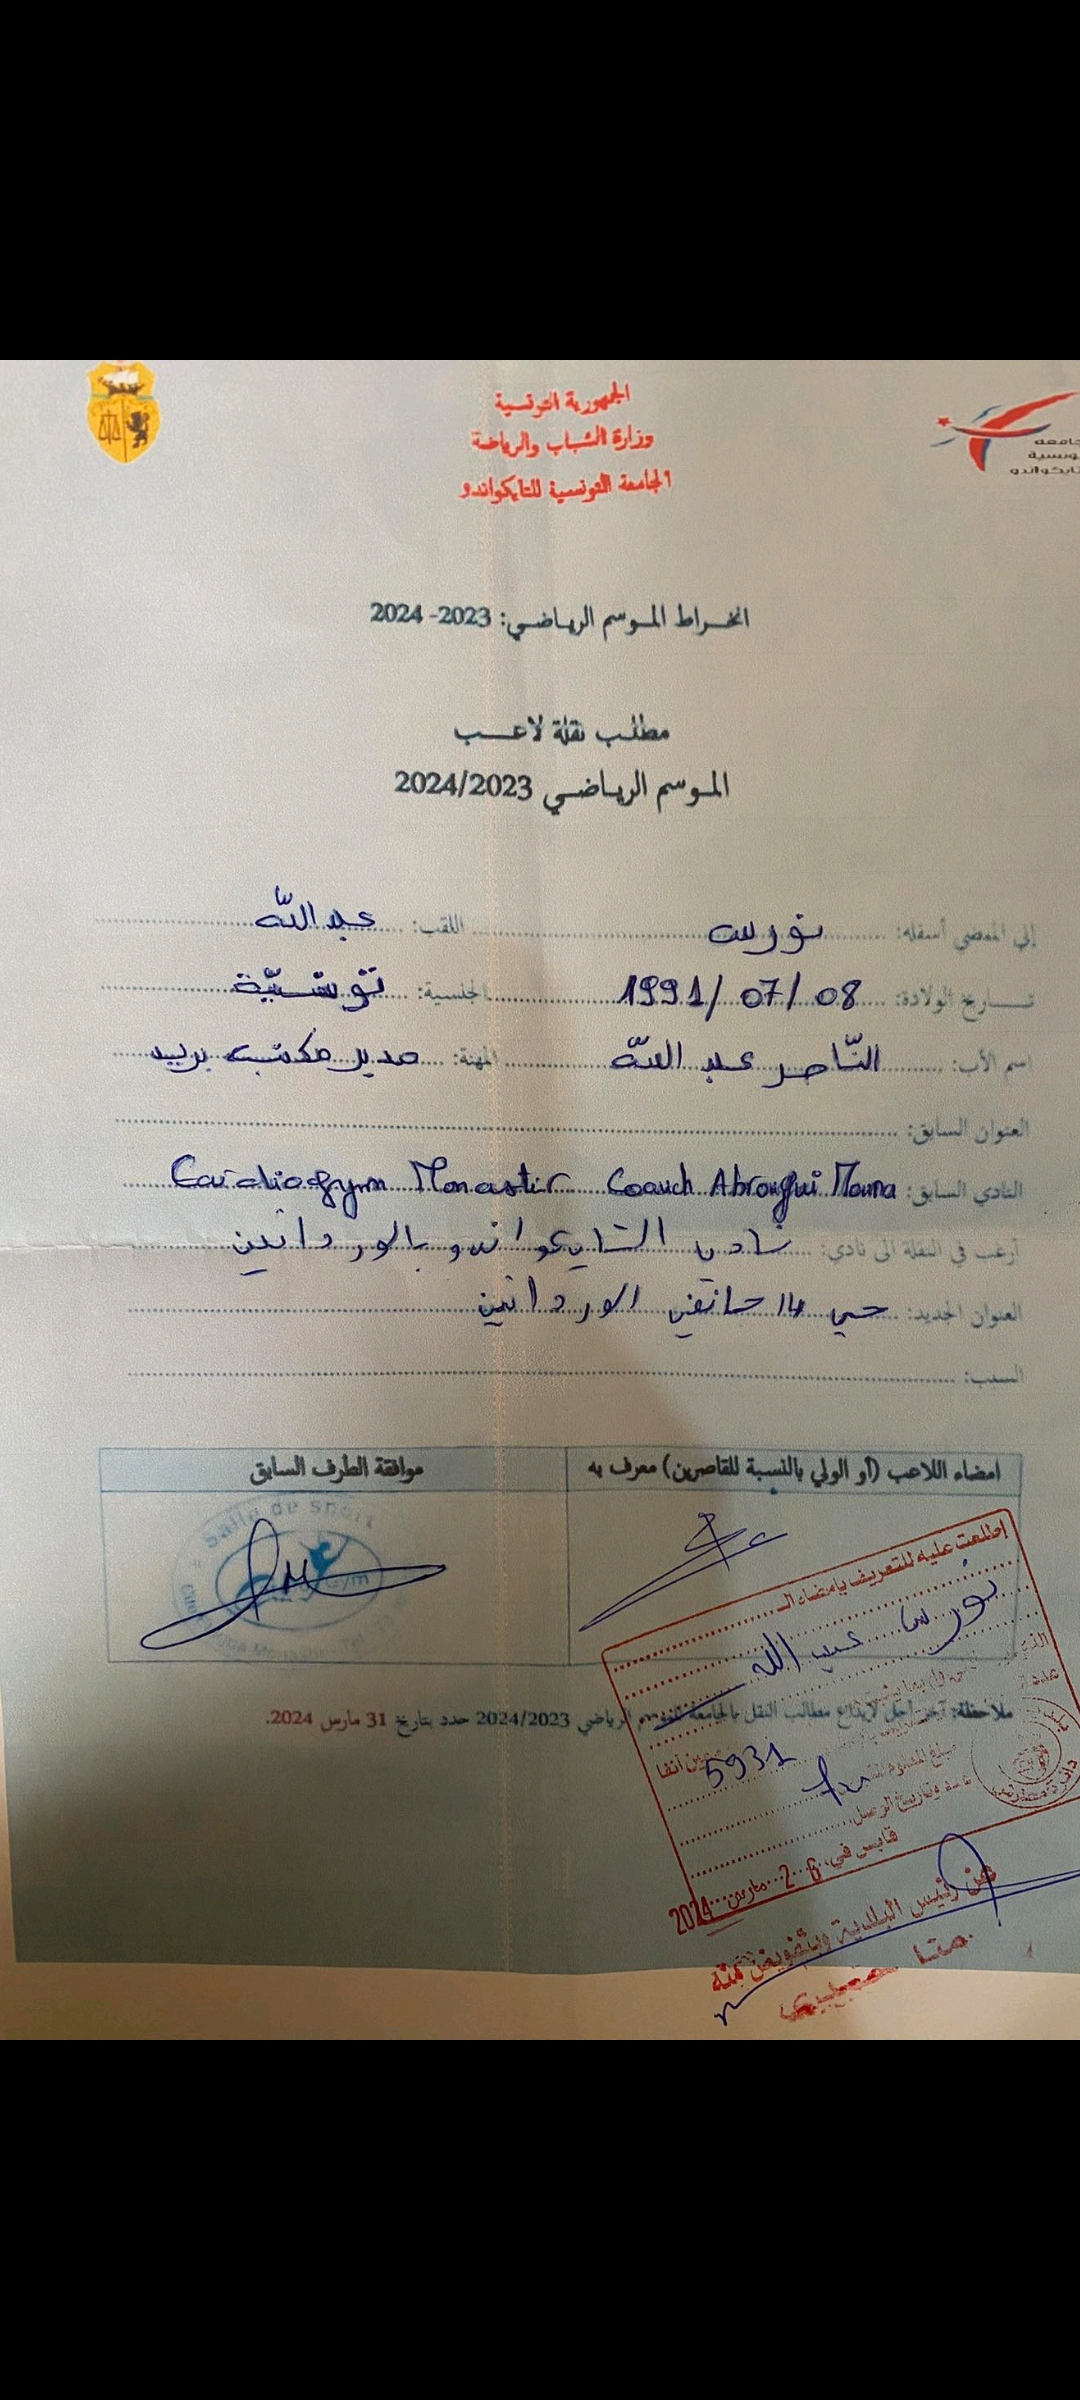 الجمهورية التونسية
وزارة الشباب والرياضة
الجامعة التونسية للتايكواندو
جامعة
تونسية
تايكواندو
انخراط الموسم الرياضي: 2023- 2024
مطلب نقلة لاعب
الموسم الرياضي 2024/2023
إني الممضي أسفله: نورس اللقب: عبد الله
تاريخ الولادة: 1991/07/08 الجنسية: تونسية
اسم الأب: الناصر عبد الله المهنة: مدير مكتب بريد
العنوان السابق:
النادي السابق: Cardiogym Monastir Coauch Abrougui Mouna
أرغب في النقلة الى نادي: نادي التايكواندو بالوردانين
العنوان الجديد: حي 14 جانفي الوردانين
السبب:
امضاء اللاعب (أو الولي بالنسبة للقاصرين) معرف به
موافقة الطرف السابق
Salle de sport
Gym
إطلعت عليه للتعريف بإمضاء الـ
نورس عبد الله
ملاحظة: آخر أجل لإيداع مطالب النقل بالجامعة للموسم الرياضي 2024/2023 حدد بتاريخ 31 مارس 2024.
5931
قابس في 26 مارس 2024
عن رئيس البلدية وبتفويض منه